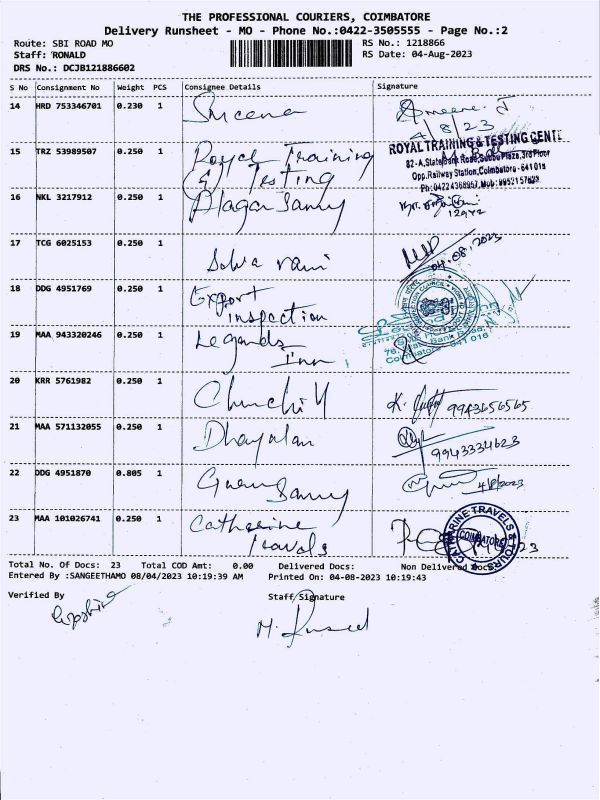 THE PROFESSIONAL COURIERS, COIMBATORE
Delivery Runsheet - MO - Phone No.:0422-3505555 - Page No.:2
Route: SBI ROAD MO RS No.: 1218866
Staff: RONALD RS Date: 04-Aug-2023
DRS No.: DCJB121886602
S No Consignment No Weight PCS Consignee Details Signature
14 HRD 753346701 0.230 1 Smeena Ameena. J
4/8/23
15 TRZ 53989507 0.250 1 Royal Training ROYAL TRAINING & TESTING CENT
& Testing 82-A, State Bank Road, Subbu Plaza, 3rd Floor
Opp. Railway Station, Coimbatore - 641 018
Ph: 04224368957, Mob: 9952157828
16 NKL 3217912 0.250 1 Alagar Samy
17 TCG 6025153 0.250 1 Selva rani 04.08.2023
18 DDG 4951769 0.250 1 Export
inspection
19 MAA 943320246 0.250 1 Legands
Inn 76, State Bank Road,
Coimbatore - 641 018
20 KRR 5761982 0.250 1 9943656565
21 MAA 571132055 0.250 1 Dhayalan
9943334623
22 DDG 4951870 0.805 1 Guru
Samy 4/8/2023
23 MAA 101026741 0.250 1 Catherine CATHARINE TRAVELS & TOURS
travals COIMBATORE
Total No. Of Docs: 23 Total COD Amt: 0.00 Delivered Docs: Non Delivered Docs:
Entered By :SANGEETHAMO 08/04/2023 10:19:39 AM Printed On: 04-08-2023 10:19:43
Verified By Staff Signature